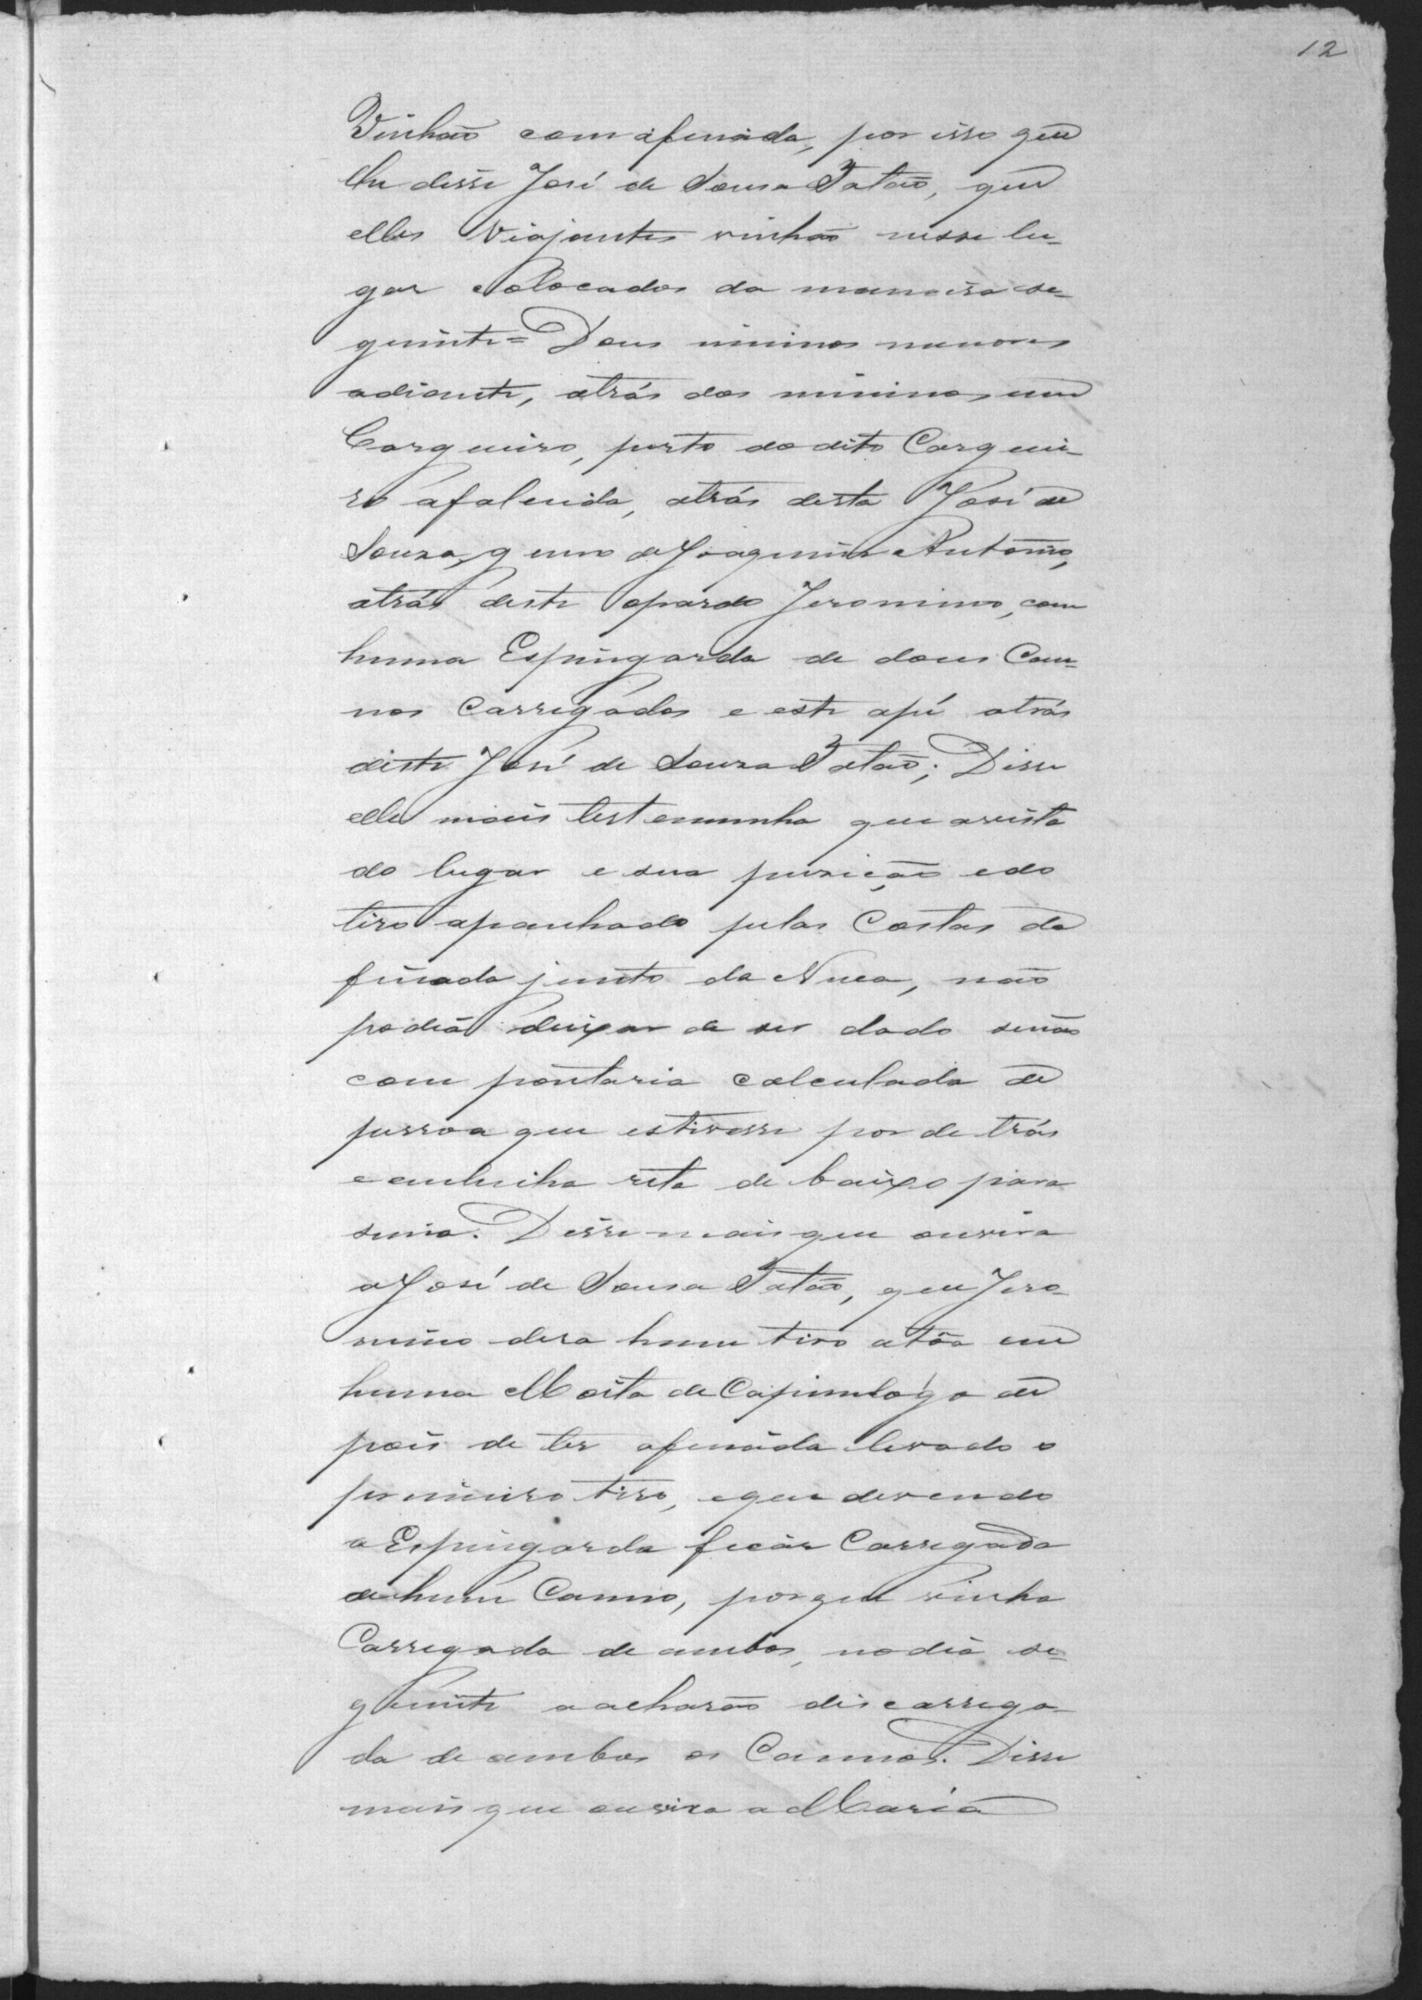 12
Vinhão com afinada, por isso que
lhe disse José de Sousa Tatão, que
elles Viajantes vinhão nesse lu-
gar collocados da maneira se-
guinte = Dous mininos menores
adiante, atrás dos mininos um
Cargueiro, perto do dito Carguei-
ro afalecida, atrás desta José de
Souza, genro de Joaquim Antonio,
atrás deste opardo Jeronimo, com
huma Espingarda de dous Can-
nos Carregados e este apé atrás
deste José de Souza Tatão; Disse
elle mais testemunha que avista
do lugar e sua puzição edo
tiro apanhado pelas Costas da
finada junto da Nuca, não
podia deixar de ser dado senão
com pontaria calculada de
pessoa que estivesse por de trás
e emlinha reta de baixo para
sima. Disse mais que ouvira
a José de Sousa Tatão, que Jero-
nimo dera hum tiro atôa em
huma Moita de Capim logo de
pois de ter afinada levado o
primeiro tiro, eque devendo
a Espingarda ficar Carregada
de hum Canno, porque vinha
Carregada de ambos, nodia se-
guinte aacharão discarrega-
da de ambos os Cannos. Disse
mais que ouvira a Maria